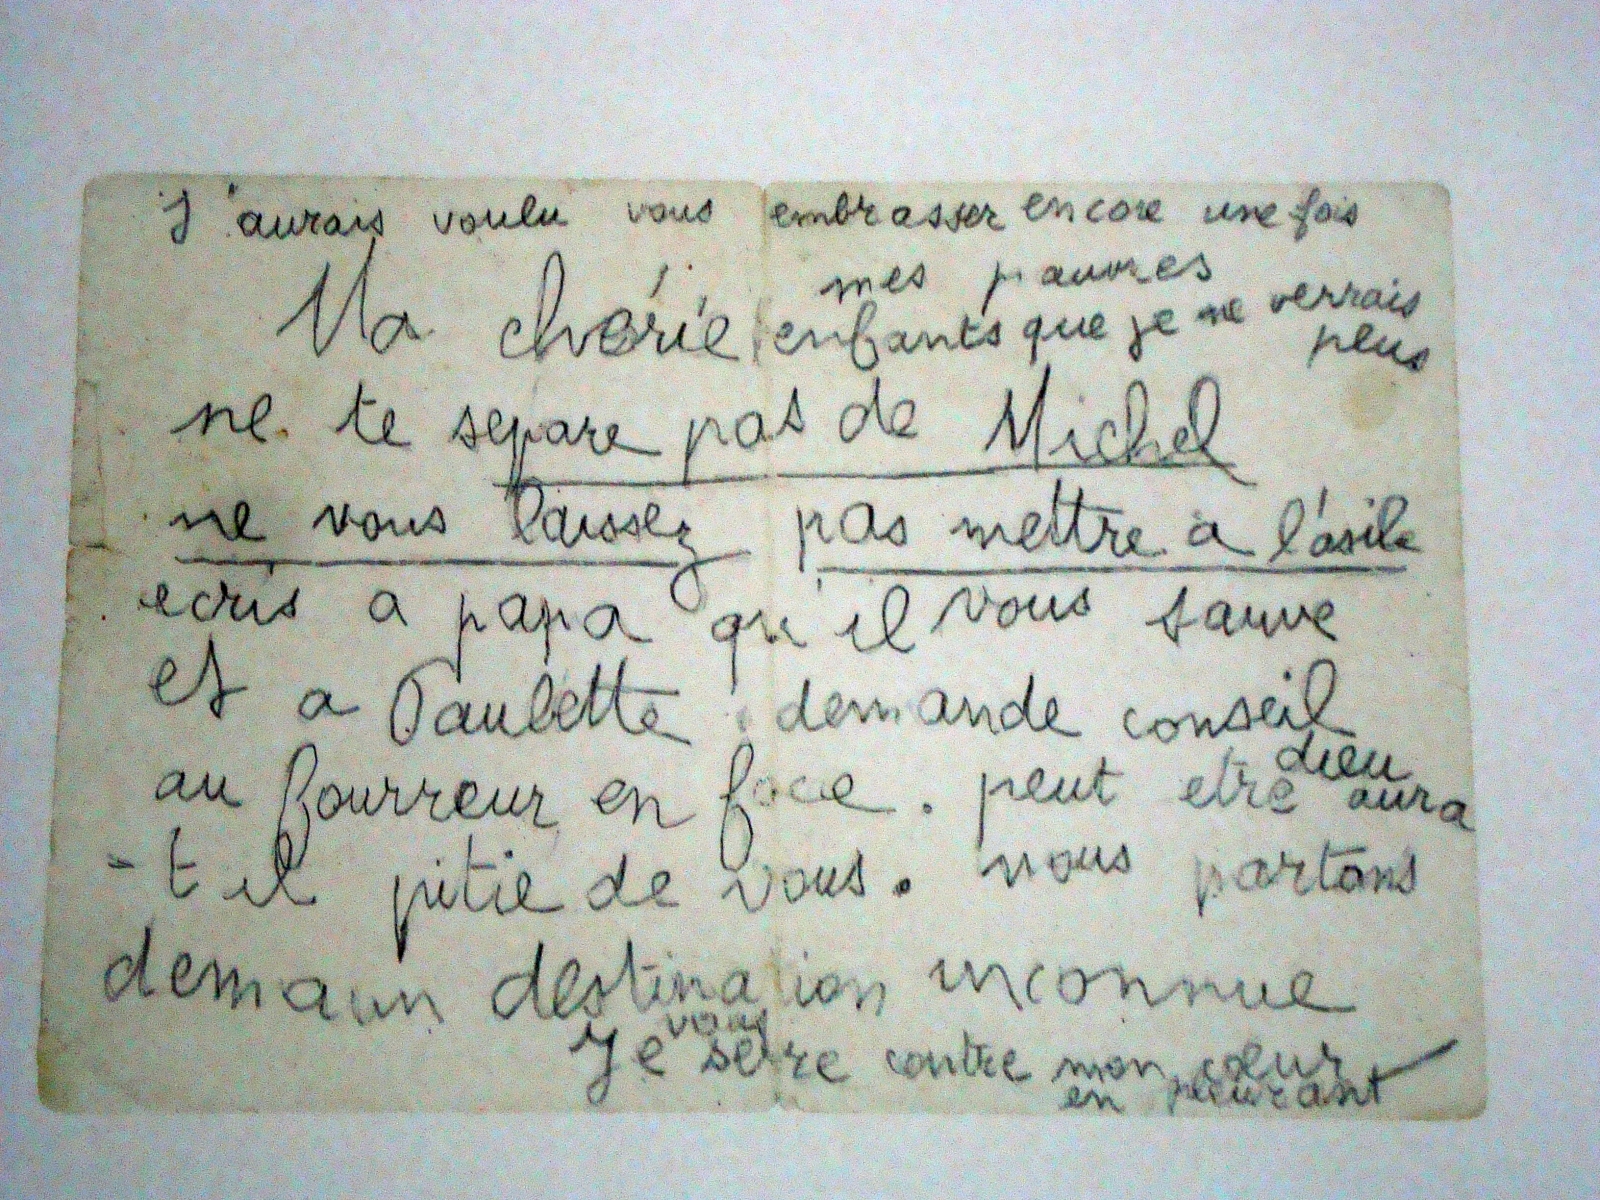 J'aurais voulu vous embrasser encore une fois
mes pauvres
enfants que je ne verrais
plus
Ma chérie
ne te separe pas de Michel
ne vous laissez pas mettre a l'asile
ecris a papa qu'il vous sauve
et a Paulette demande conseil
au fourreur en face. peut etre dieu aura
-t il pitie de vous. nous partons
demain destination inconnue
Je vous serre contre mon cœur
en pleurant